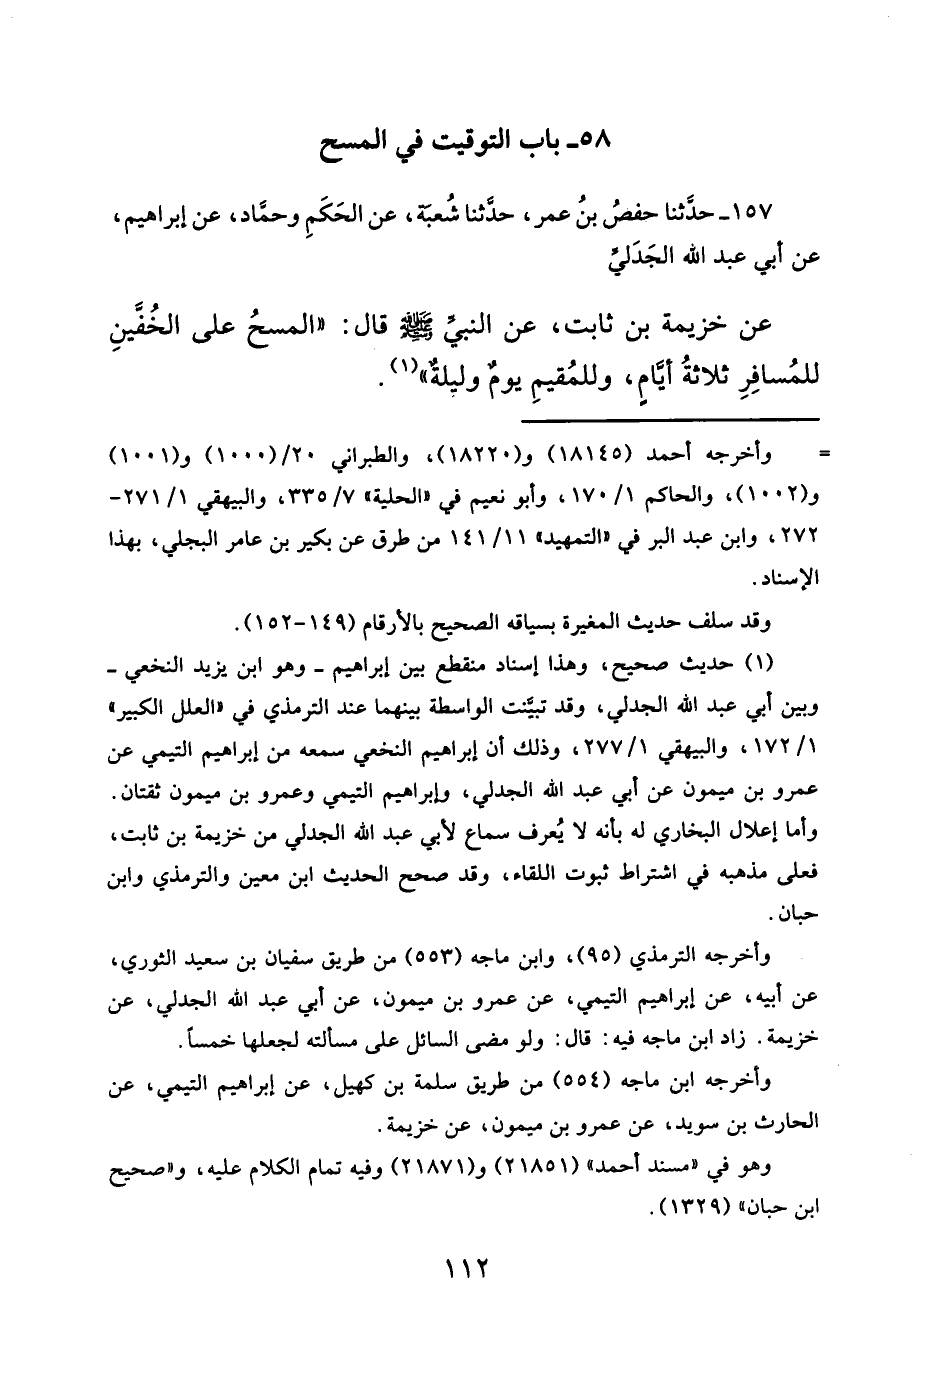 ٥٨ـ باب التوقيت في المسح
١٥٧ـ حدَّثنا حفصُ بنُ عمر، حدَّثنا شُعبَة، عن الحَكَمِ وحمَّاد، عن إبراهيم،
عن أبي عبد الله الجَدَليِّ
عن خزيمة بن ثابت، عن النبيِّ ﷺ قال: «المسحُ على الخُفَّينِ
للمُسافِرِ ثلاثةُ أيَّامٍ، وللمُقيمِ يومٌ وليلةٌ»(١).
= وأخرجه أحمد (١٨١٤٥) و(١٨٢٢٠)، والطبراني ٢٠/(١٠٠٠) و(١٠٠١)
و(١٠٠٢)، والحاكم ١/ ١٧٠، وأبو نعيم في «الحلية» ٧/ ٣٣٥، والبيهقي ١/ ٢٧١-
٢٧٢، وابن عبد البر في «التمهيد» ١١/ ١٤١ من طرق عن بكير بن عامر البجلي، بهذا
الإسناد.
وقد سلف حديث المغيرة بسياقه الصحيح بالأرقام (١٤٩-١٥٢).
(١) حديث صحيح، وهذا إسناد منقطع بين إبراهيم ـ وهو ابن يزيد النخعي ـ
وبين أبي عبد الله الجدلي، وقد تبيَّنت الواسطة بينهما عند الترمذي في «العلل الكبير»
١/ ١٧٢، والبيهقي ١/ ٢٧٧، وذلك أن إبراهيم النخعي سمعه من إبراهيم التيمي عن
عمرو بن ميمون عن أبي عبد الله الجدلي، وإبراهيم التيمي وعمرو بن ميمون ثقتان.
وأما إعلال البخاري له بأنه لا يُعرف سماع لأبي عبد الله الجدلي من خزيمة بن ثابت،
فعلى مذهبه في اشتراط ثبوت اللقاء، وقد صحح الحديث ابن معين والترمذي وابن
حبان.
وأخرجه الترمذي (٩٥)، وابن ماجه (٥٥٣) من طريق سفيان بن سعيد الثوري،
عن أبيه، عن إبراهيم التيمي، عن عمرو بن ميمون، عن أبي عبد الله الجدلي، عن
خزيمة. زاد ابن ماجه فيه: قال: ولو مضى السائل على مسألته لجعلها خمساً.
وأخرجه ابن ماجه (٥٥٤) من طريق سلمة بن كهيل، عن إبراهيم التيمي، عن
الحارث بن سويد، عن عمرو بن ميمون، عن خزيمة.
وهو في «مسند أحمد» (٢١٨٥١) و(٢١٨٧١) وفيه تمام الكلام عليه، و«صحيح
ابن حبان» (١٣٢٩).
١١٢